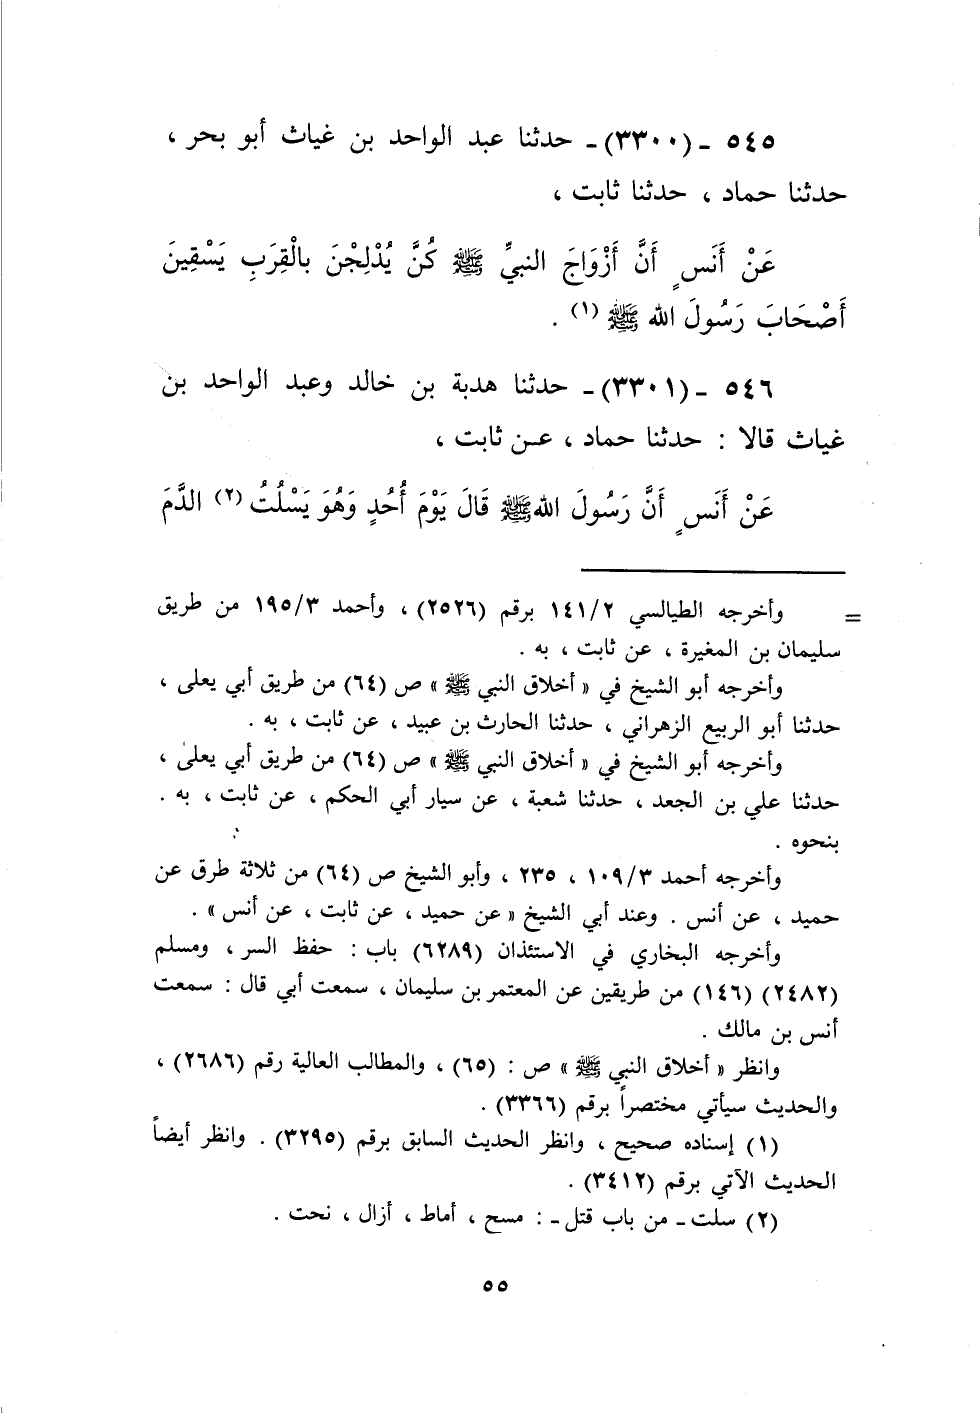 ٥٤٥ ـ (٣٣٠٠) ـ حدثنا عبد الواحد بن غياث أبو بحر ،
حدثنا حماد ، حدثنا ثابت ،
عَنْ أَنَسٍ أَنَّ أَزْوَاجَ النبيِّ ﷺ كُنَّ يُدْلِجْنَ بالْقِرَبِ يَسْقِينَ
أَصْحَابَ رَسُولَ الله ﷺ (١) .
٥٤٦ ـ (٣٣٠١) ـ حدثنا هدبة بن خالد وعبد الواحد بن
غياث قالا : حدثنا حماد ، عـن ثابت ،
عَنْ أَنَسٍ أَنَّ رَسُولَ الله ﷺ قَالَ يَوْمَ أُحُدٍ وَهُوَ يَسْلُتُ (٢) الدَّمَ
= وأخرجه الطيالسي ١٤١/٢ برقم (٢٥٢٦) ، وأحمد ١٩٥/٣ من طريق
سليمان بن المغيرة ، عن ثابت ، به .
وأخرجه أبو الشيخ في « أخلاق النبي ﷺ » ص (٦٤) من طريق أبي يعلى ،
حدثنا أبو الربيع الزهراني ، حدثنا الحارث بن عبيد ، عن ثابت ، به .
وأخرجه أبو الشيخ في « أخلاق النبي ﷺ » ص (٦٤) من طريق أبي يعلى ،
حدثنا علي بن الجعد ، حدثنا شعبة ، عن سيار أبي الحكم ، عن ثابت ، به .
بنحوه .
وأخرجه أحمد ١٠٩/٣ ، ٢٣٥ ، وأبو الشيخ ص (٦٤) من ثلاثة طرق عن
حميد ، عن أنس . وعند أبي الشيخ « عن حميد ، عن ثابت ، عن أنس » .
وأخرجه البخاري في الاستئذان (٦٢٨٩) باب : حفظ السر ، ومسلم
(٢٤٨٢) (١٤٦) من طريقين عن المعتمر بن سليمان ، سمعت أبي قال : سمعت
أنس بن مالك .
وانظر « أخلاق النبي ﷺ » ص : (٦٥) ، والمطالب العالية رقم (٢٦٨٦) ،
والحديث سيأتي مختصراً برقم (٣٣٦٦) .
(١) إسناده صحيح ، وانظر الحديث السابق برقم (٣٢٩٥) . وانظر أيضاً
الحديث الآتي برقم (٣٤١٢) .
(٢) سلت ـ من باب قتل ـ : مسح ، أماط ، أزال ، نحت .
٥٥